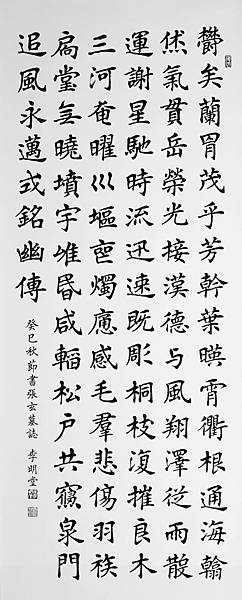 欝矣蘭冑茂乎芳幹葉暎霄衢根通海翰
烋氣貫岳榮光接漢德与風翔澤従雨散
運謝星馳時流迅速既彫桐枝復摧良木
三河奄曜巛塸寍燭痛感毛羣悲傷羽族
扃堂无曉墳宇唯昏咸韜松户共寢泉門
追風永邁式銘幽傳
癸巳秋節書張玄墓誌 李明堂